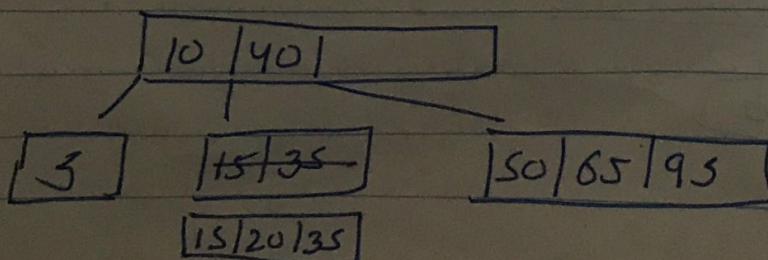 10 | 40 |
5 | 15 | 35 | 50 | 65 | 95
15 | 20 | 35